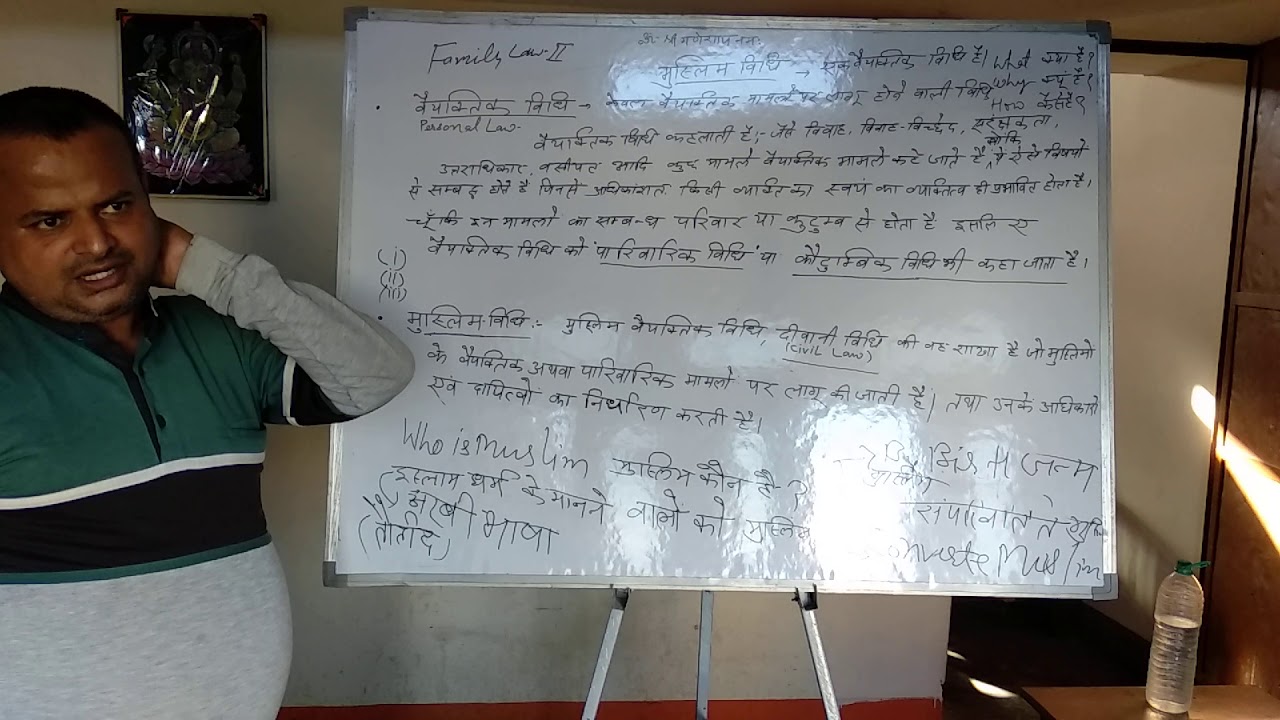 ॐ श्री गणेशाय नमः
Family Law-II
मुस्लिम विधि → एक वैयक्तिक विधि है। What क्या है?
Why क्यूं है?
How कैसे है?
• वैयक्तिक विधि → केवल वैयक्तिक मामलों पर लागू होने वाली विधि
Personal Law-
वैयक्तिक विधि कहलाती है;- जैसे विवाह, विवाह-विच्छेद, संरक्षकता,
उत्तराधिकार, वसीयत आदि कुछ मामले वैयक्तिक मामले कहे जाते हैं, क्योंकि ये ऐसे विषयों
से सम्बद्ध होते है जिनसे अधिकांशतः किसी व्यक्ति का स्वयं का व्यक्तित्व ही प्रभावित होता है।
चूँकि इन मामलों का सम्बन्ध परिवार या कुटुम्ब से होता है इसलिए
वैयक्तिक विधि को 'पारिवारिक विधि' या कौटुम्बिक विधि भी कहा जाता है।
(i)
(ii)
(iii)
• मुस्लिम-विधि:- मुस्लिम वैयक्तिक विधि, दीवानी विधि की वह शाखा है जो मुस्लिमो
(Civil Law)
के वैयक्तिक अथवा पारिवारिक मामलो पर लागू की जाती है। तथा उनके अधिकारो
एवं दायित्वों का निर्धारण करती है।
Who is Muslim मुस्लिम कौन है ?
By Birth जन्म
इस्लाम धर्म के मानने वालो को मुस्लिम
अरबी भाषा
संपरिवर्तन से
Muslim